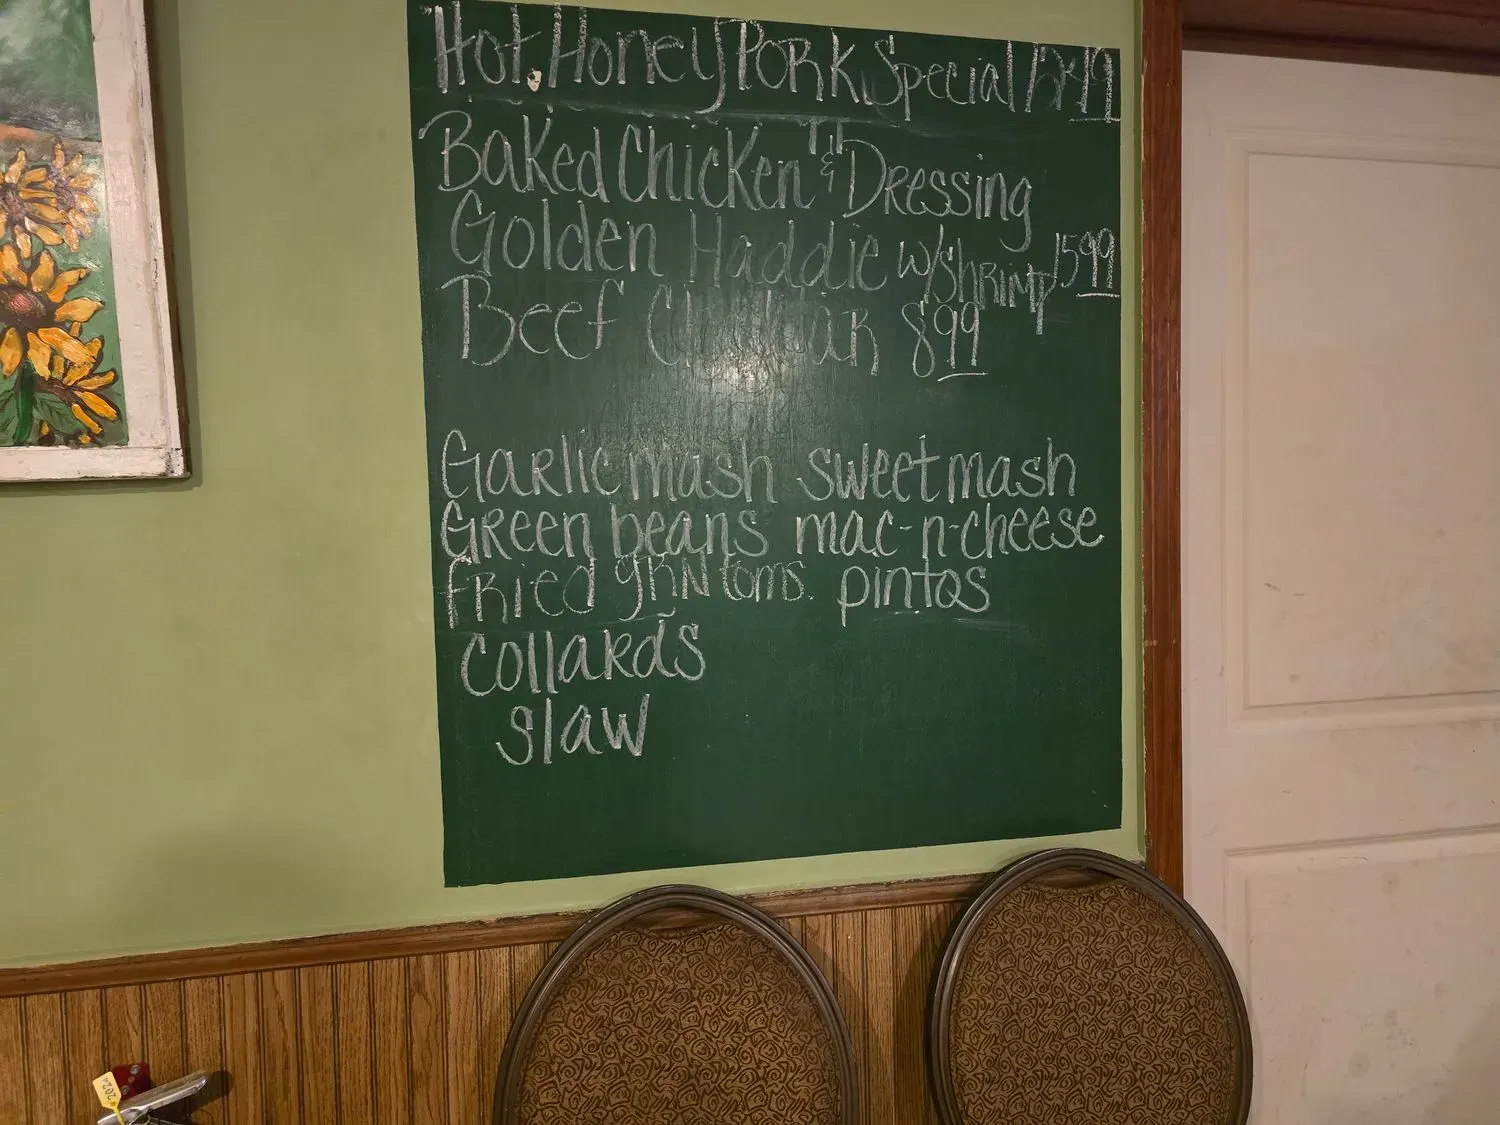 Hot Honey Pork Special
Baked Chicken & Dressing
Golden Haddie w/shrimp 15.99
Beef 8.99
Garlic mash sweet mash
Green beans mac-n-cheese
fried grn toms. pintos
collards
slaw